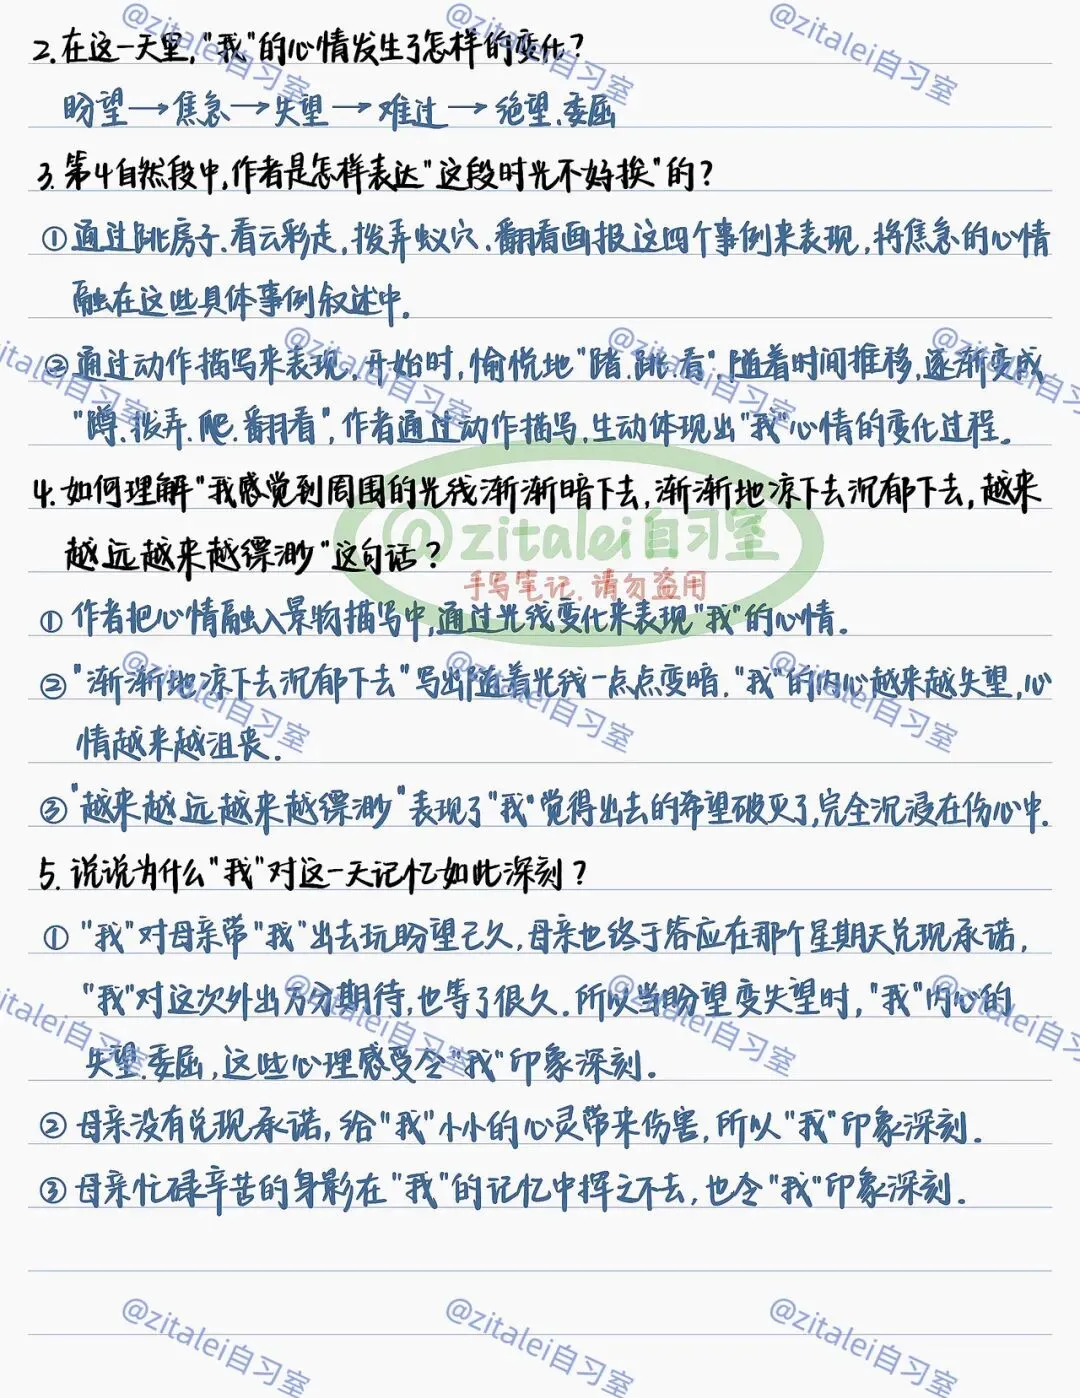 2.在这一天里,"我"的心情发生了怎样的变化?
盼望→焦急→失望→难过→绝望.委屈
3.第4自然段中,作者是怎样表达"这段时光不好挨"的?
①通过跳房子.看云彩走,拨弄蚁穴.翻看画报这四个事例来表现,将焦急的心情
融在这些具体事例叙述中.
②通过动作描写来表现.开始时,愉悦地"踏.跳.看".随着时间推移,逐渐变成
"蹲.拨弄.爬.翻看",作者通过动作描写,生动体现出"我"心情的变化过程.
4.如何理解"我感觉到周围的光线渐渐暗下去,渐渐地凉下去沉郁下去,越来
越远越来越缥渺"这句话?
@zitalei自习室
手写笔记.请勿盗用
①作者把心情融入景物描写中,通过光线变化来表现"我"的心情.
②"渐渐地凉下去沉郁下去"写出随着光线一点点变暗."我"的内心越来越失望,心
情越来越沮丧.
③"越来越远越来越缥渺"表现了"我"觉得出去的希望破灭了,完全沉浸在伤心中.
5.说说为什么"我"对这一天记忆如此深刻?
①"我"对母亲带"我"出去玩盼望已久,母亲也终于答应在那个星期天兑现承诺,
"我"对这次外出万分期待,也等了很久.所以当盼望变失望时,"我"内心的
失望.委屈,这些心理感受令"我"印象深刻.
②母亲没有兑现承诺,给"我"小小的心灵带来伤害,所以"我"印象深刻.
③母亲忙碌辛苦的身影在"我"的记忆中挥之不去,也令"我"印象深刻.
@zitalei自习室
@zitalei自习室
@zitalei自习室